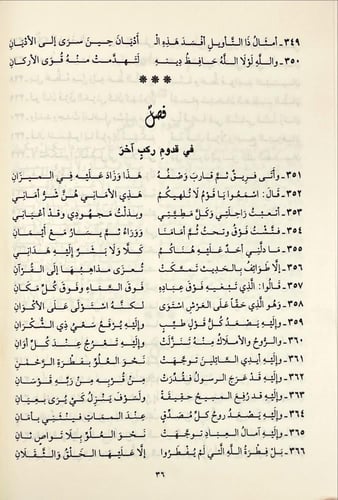 ٣٤٩ ـ أمثالُ ذا التَّأويلِ أفْسَدَ هَذِهِ الْـ أَدْيَانَ حِينَ سَرَى إلى الأَدْيَانِ
٣٥٠ ـ واللهِ لَوْلَا اللَّهُ حَافِظُ دِينِهِ لَتَهَدَّمَتْ مِنْهُ قُوَى الأَرْكَانِ
***
فصلٌ
في قدومِ ركبٍ آخرَ
٣٥١ ـ وأَتَى فَرِيقٌ ثمَّ قَارَبَ وَصْفُهُ هَذَا وَزَادَ عَلَيهِ فِي المِيزَانِ
٣٥٢ ـ قَالَ: اسْمَعُوا يَا قَوْمُ لَا تُلْهِيكُمُ هَذِي الأَمَانِي هُنَّ شَرُّ أَمَانِي
٣٥٣ ـ أَتْعَبْتُ رَاحِلَتِي وَكَلَّ مَطِيَّتِي وبَذَلْتُ مَجْهُودِي وقدْ أَعْيَانِي
٣٥٤ ـ فَتَّشْتُ فَوْقَ وتَحْتُ ثُمَّ أَمَامَنَا وَوَرَاءُ ثُمَّ يَسَارُ مَعْ أَيْمَانِ
٣٥٥ ـ مَا دلَّنِي أَحَدٌ عَلَيْهِ هُنَاكُمُ كَلَّا وَلَا بَشَرٌ إِلَيْهِ هَدَانِي
٣٥٦ ـ إلَّا طَوَائِفُ بِالحَدِيثِ تَمسَّكَتْ تُعْزَى مَذَاهِبُهَا إِلَى القُرْآنِ
٣٥٧ ـ قَالُوا: الَّذِي نَبْغِيهِ فَوْقَ عِبَادِهِ فَوْقَ السَّمَاءِ وَفَوْقَ كُلِّ مَكَانِ
٣٥٨ ـ وَهُوَ الَّذِي حَقًّا عَلَى العَرْشِ اسْتَوَى لَكِنَّهُ اسْتَوْلَى عَلَى الأَكْوَانِ
٣٥٩ ـ وإلَيْهِ يَصْعَدُ كُلُّ قَوْلٍ طَيِّبٍ وإلَيْهِ يُرْفَعُ سَعْيُ ذِي الشُّكْرَانِ
٣٦٠ ـ والرُّوحُ والأَمْلَاكُ مِنْهُ تَنَزَّلَتْ وإلَيْهِ تَعْرُجُ عِنْدَ كُلِّ أَوَانِ
٣٦١ ـ وإلَيْهِ أَيْدِي السَّائِلِينَ تَوجَّهَتْ نَحْوَ العُلُوِّ بِفِطْرَةِ الرَّحْمٰنِ
٣٦٢ ـ وإلَيْهِ قَدْ عَرَجَ الرسولُ فَقُدِّرَتْ مِنْ قُرْبِهِ مِنْ رَبِّهِ قَوْسَانِ
٣٦٣ ـ وإلَيْهِ قد رُفِعَ المسِيحُ حَقِيقَةً ولَسَوفَ يَنْزِلُ كَيْ يُرَى بِعِيَانِ
٣٦٤ ـ وإلَيْهِ يَصْعَدُ روحُ كلِّ مُصَدِّقٍ عندَ المماتِ فيَنْثَنِي بأمَانِ
٣٦٥ ـ وإلَيْهِ آمَالُ العِبَادِ تَوجَّهَتْ نَحْوَ العُلُوِّ بِلَا تَوَاصٍ ثَانِ
٣٦٦ ـ بَلْ فِطْرَةُ اللَّهِ الَّتِي لَمْ يُفْطَرُوا إلَّا عَلَيْهَا الخَلْقُ والثَّقَلَانِ
٣٦